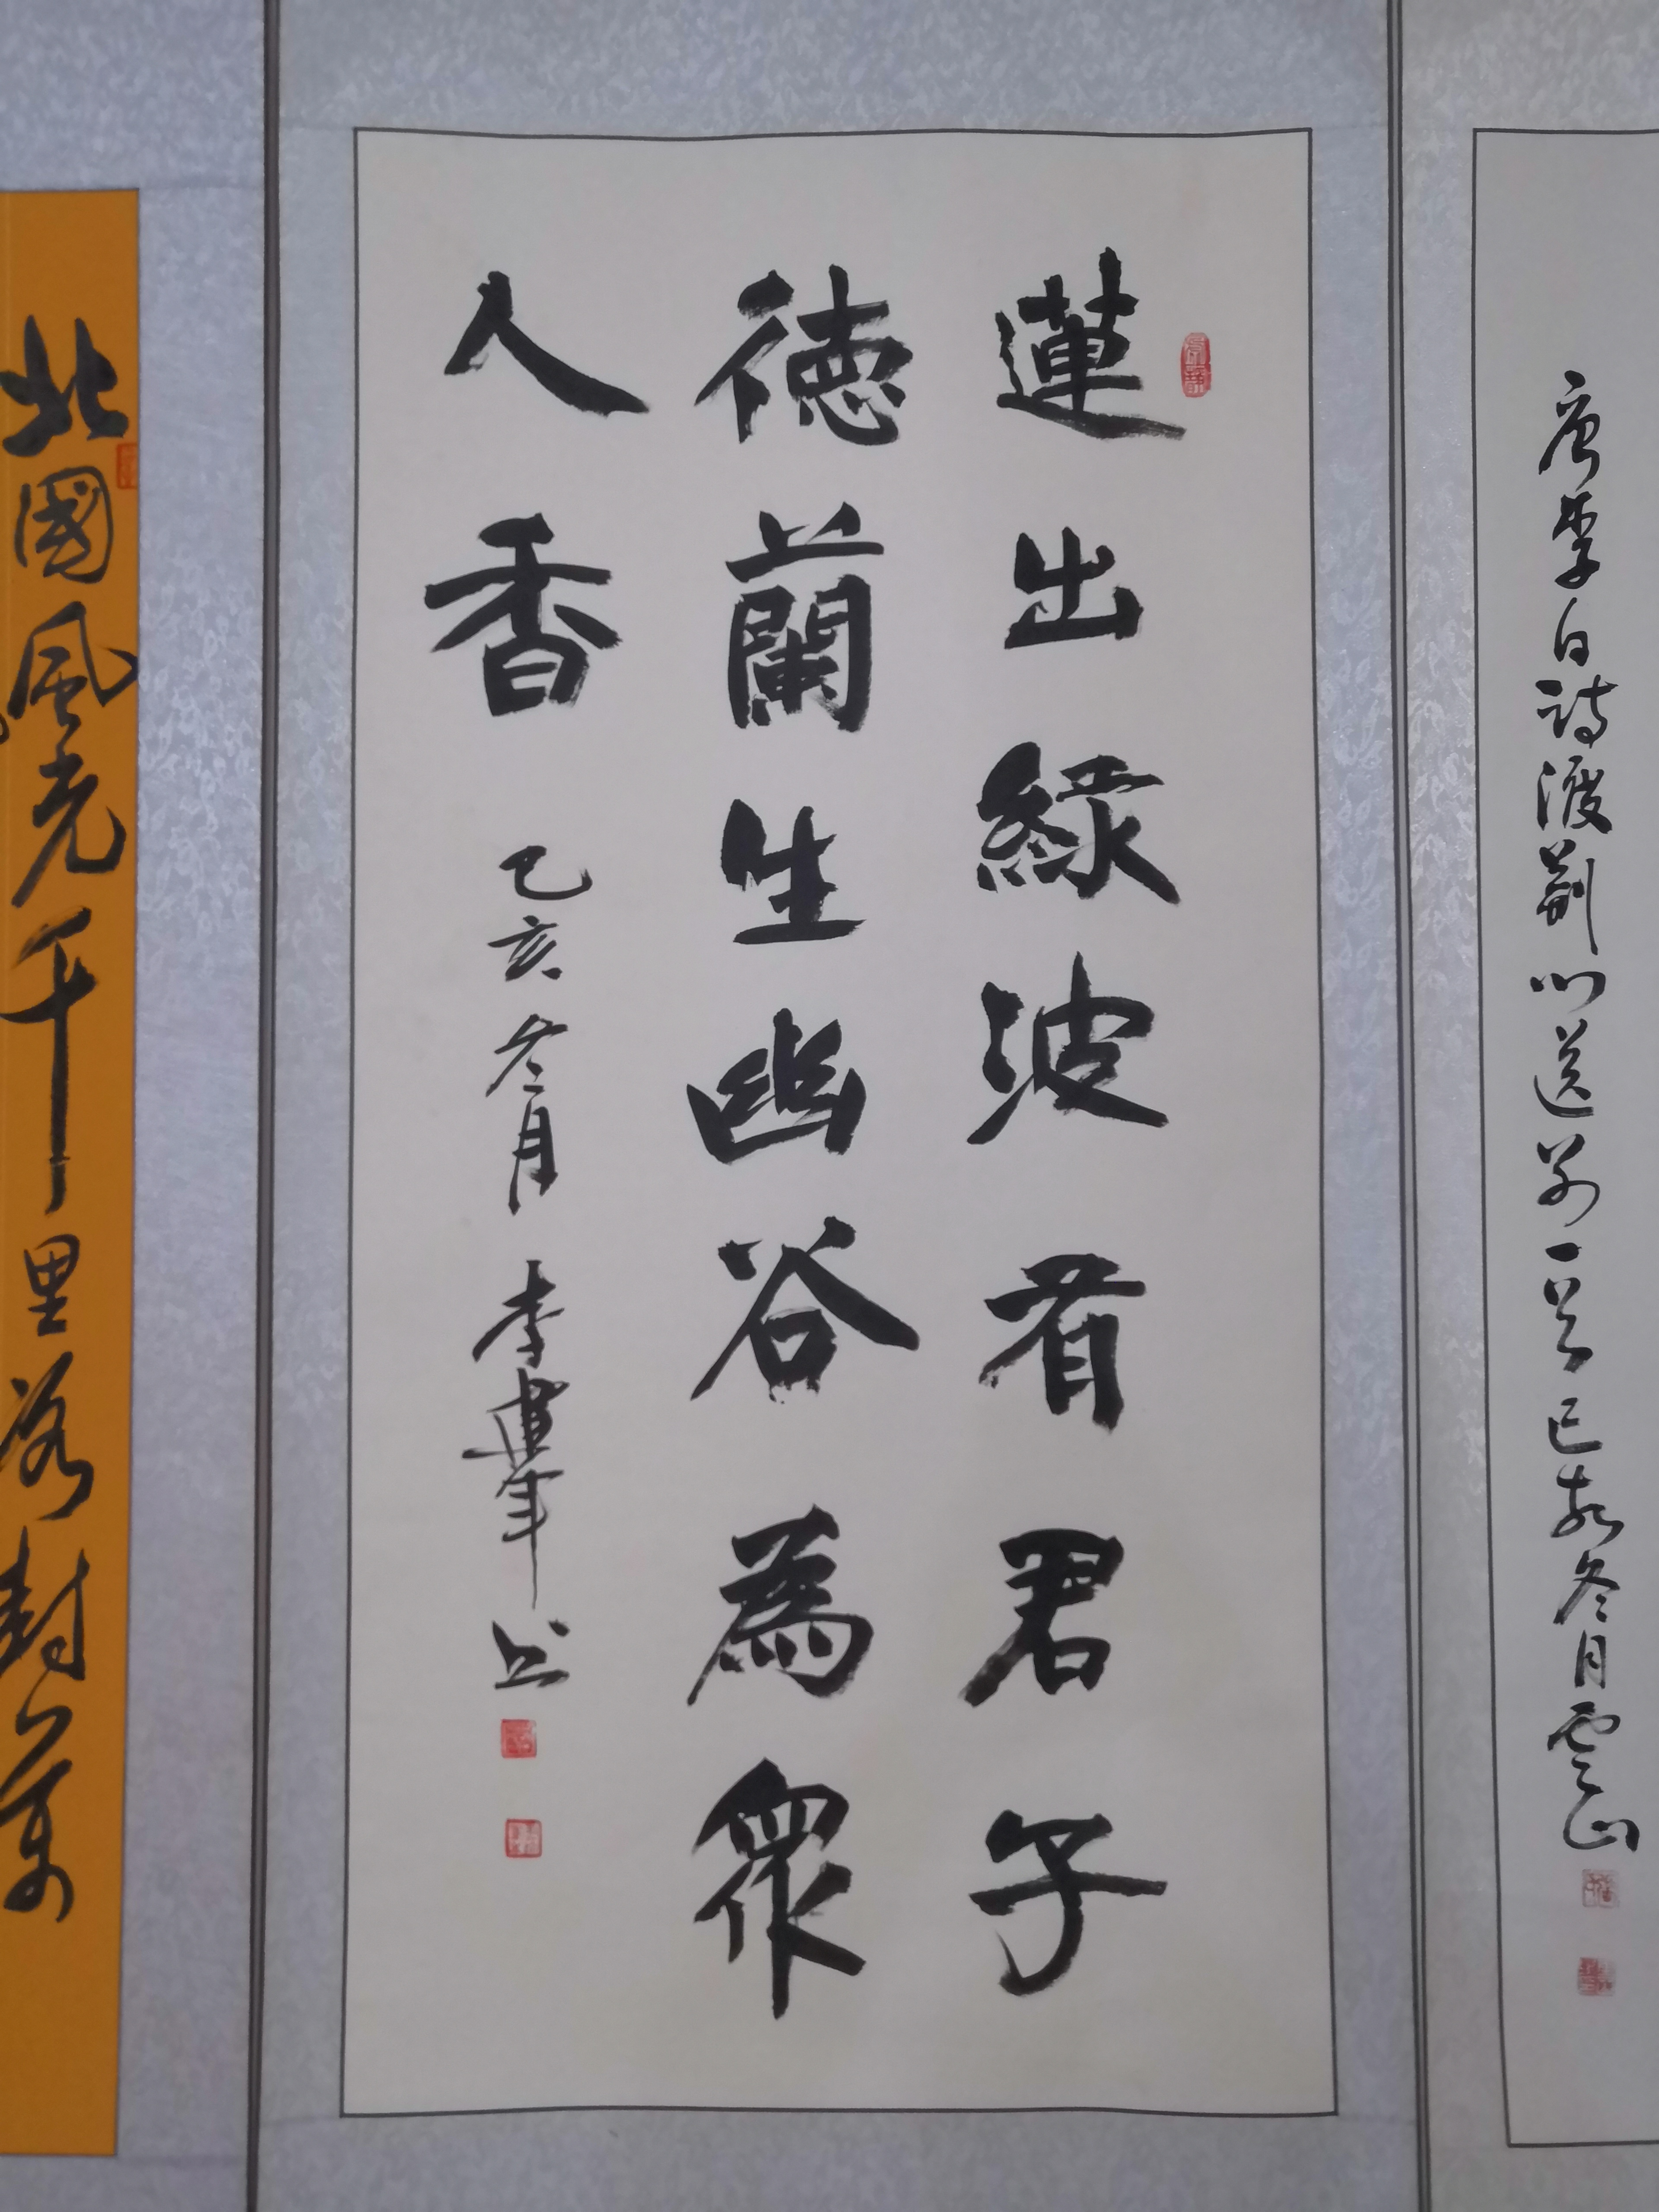 蓮出綠波有君子
德蘭生幽谷為眾
人香 己亥冬月 李建軍書
唐李白詩渡荊門送別一首己亥冬月雲山
北國風光千里冰封萬